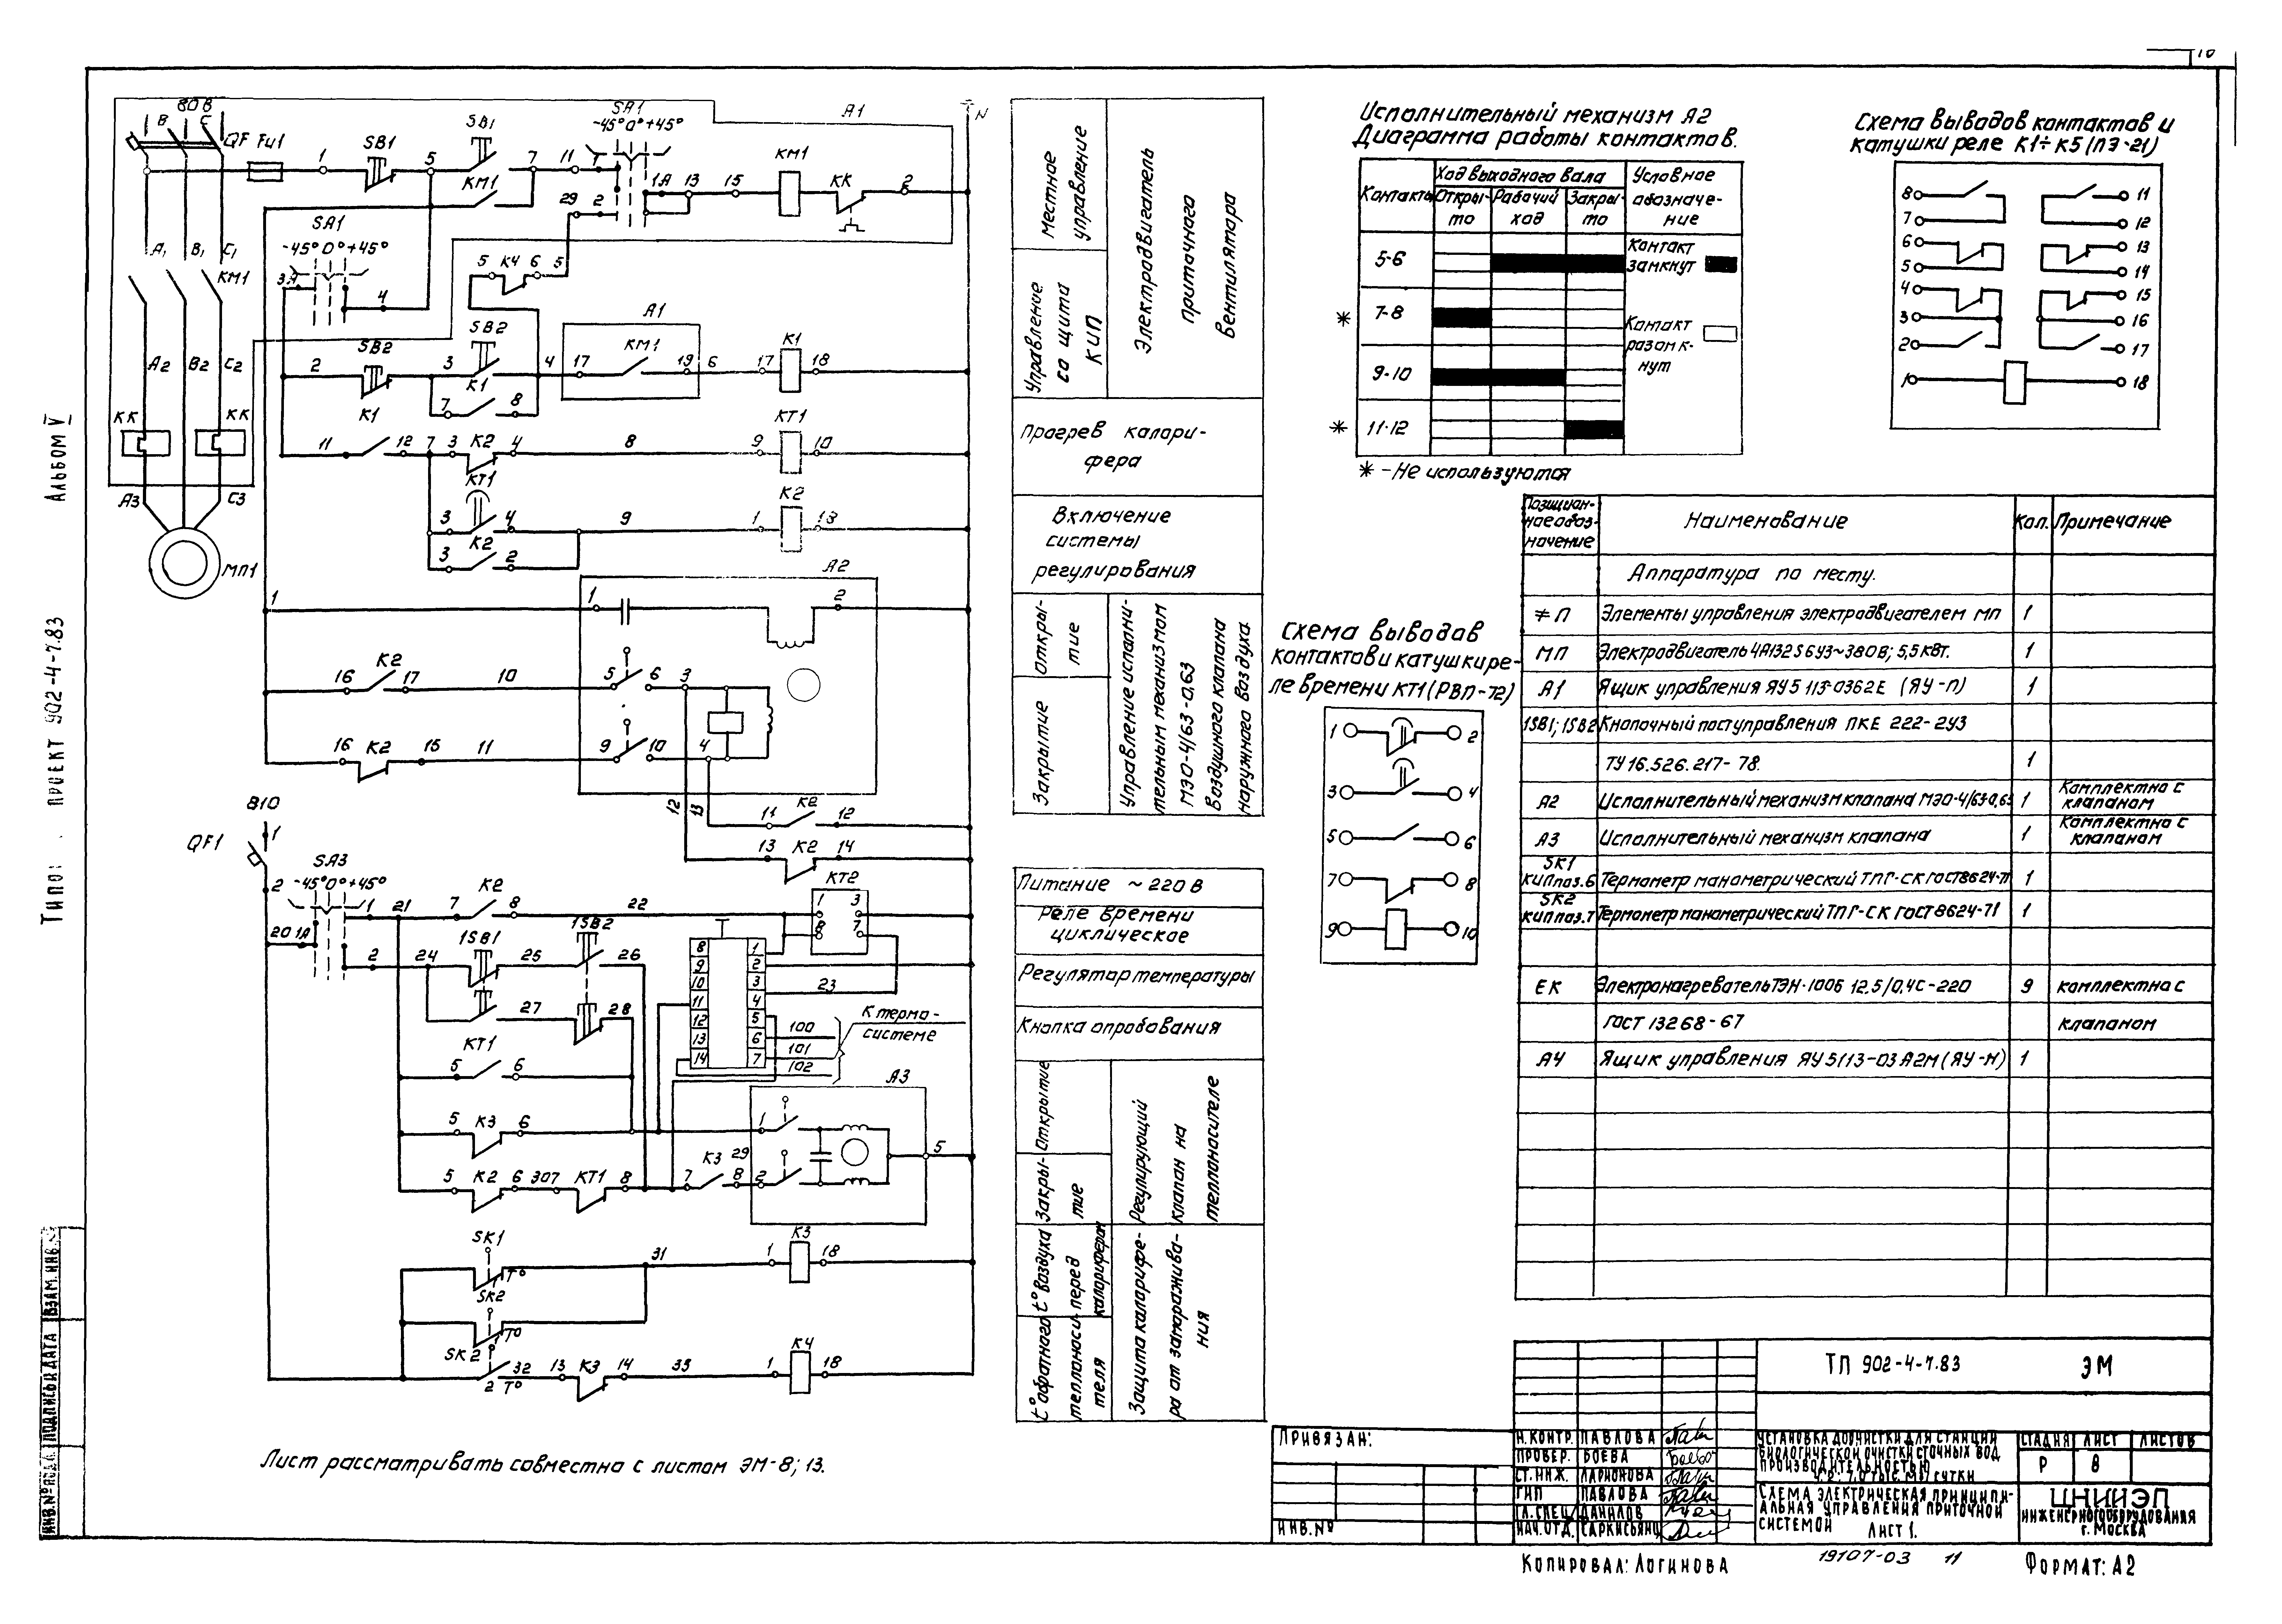 Альбом V
Типов. проект 902-4-7.83
Взам. инв.
Подпись и дата
Инв. № подл.
80В
В
С
QF
Fu1
1
SB1
5
SB1
КМ1
7
11
1
SA1
-45° 0° +45°
29
2
1А
13
15
КМ1
КК
2
А1
N
SA1
-45° 0° +45°
3А
4
А1
В1
С1
КМ1
5
К4
6
5
SB2
2
3
SB2
К1
7
8
4
А1
17
КМ1
19
6
17
К1
18
А2
В2
С2
КК
КК
А3
С3
МП1
К1
11
12
7
3
К2
4
8
9
КТ1
10
КТ1
3
4
9
1
К2
18
К2
3
2
А2
1
1
2
16
К2
17
10
5
6
3
16
К2
15
11
9
10
4
12
13
11
К2
12
13
К2
14
В10
QF1
1
2
SA3
-45° 0° +45°
20
1А
1
21
2
7
К2
8
22
КТ2
1
3
8
7
24
1SB1
25
1SB2
26
27
28
8
9
10
11
12
13
14
1
2
3
4
5
6
7
23
100
101
102
К термо-
системе
КТ1
5
6
5
К3
6
5
К2
6
307
КТ1
8
7
К3
8
29
А3
1
2
5
SK1
T°
31
1
К3
18
SK2
T°
SK2
2
T°
32
13
К3
14
33
1
К4
18
Лист рассматривать совместно с листом ЭМ-8; 13.
Местное управление
Управление со щита КИП
Электродвигатель приточного вентилятора
Прогрев калори-
фера
Включение
системы
регулирования
Откры-
тие
Закрытие
Управление исполни-
тельным механизмом
МЭО-4/63-0,63
Воздушного клапана
наружного воздуха
Питание ~ 220 В
Реле времени
циклическое
Регулятор температуры
Кнопка опробования
Открытие
Закры-
тие
Регулирующий
клапан на
теплоносителе
t° воздуха
перед
калорифером
t° обратного
теплоноси-
теля
Защита калорифе-
ра от заморажива-
ния
Исполнительный механизм А2
Диаграмма работы контактов.
Контакты
Ход выходного вала
Откры-
то
Рабочий
ход
Закры-
то
Условное
обозначе-
ние
5-6
* 7-8
9-10
* 11-12
Контакт
замкнут
Контакт
разомк-
нут
* - Не используются
Схема выводов контактов и
катушки реле К1÷К5 (ПЭ-21)
8
7
6
5
4
3
2
1
11
12
13
14
15
16
17
18
Схема выводов
контактов и катушки ре-
ле времени КТ1 (РВП-72)
1
2
3
4
5
6
7
8
9
10
Позицион-
ное обоз-
начение
Наименование
Кол.
Примечание
Аппаратура по месту.
≠П Элементы управления электродвигателем МП 1
МП Электродвигатель 4А132S6У3~380В; 5,5 кВт. 1
А1 Ящик управления ЯУ5113-0362Е (ЯУ-П) 1
1SB1; 1SB2 Кнопочный пост управления ПКЕ 222-2У3
ТУ 16.526.217-78. 1
А2 Исполнительный механизм клапана МЭО-4/63-0,63 1 Комплектно с клапаном
А3 Исполнительный механизм клапана 1 Комплектно с клапаном
SK1 КИП поз.6 Термометр манометрический ТПГ-СК ГОСТ 8624-71 1
SK2 КИП поз.7 Термометр манометрический ТПГ-СК ГОСТ 8624-71 1
ЕК Электронагреватель ТЭН-100Б 12,5/0,4С-220 9 комплектно с
ГОСТ 13268-67 клапаном
А4 Ящик управления ЯУ5113-03А2М (ЯУ-М) 1
Привязан:
Инв. №
ТП 902-4-7.83 ЭМ
Н. контр. Павлова
Провер. Боева
Ст. инж. Ларионова
ГИП Павлова
Гл. спец. Данилов
Нач. отд. Саркисьянц
Установка доочистки для станции
биологической очистки сточных вод
производительностью
Стадия Лист Листов
Р 8
Схема электрическая принципи-
альная управления приточной
системой Лист 1.
ЦНИИЭП
инженерного оборудования
г. Москва
Копировал: Логинова
19107-03 11
Формат: А2